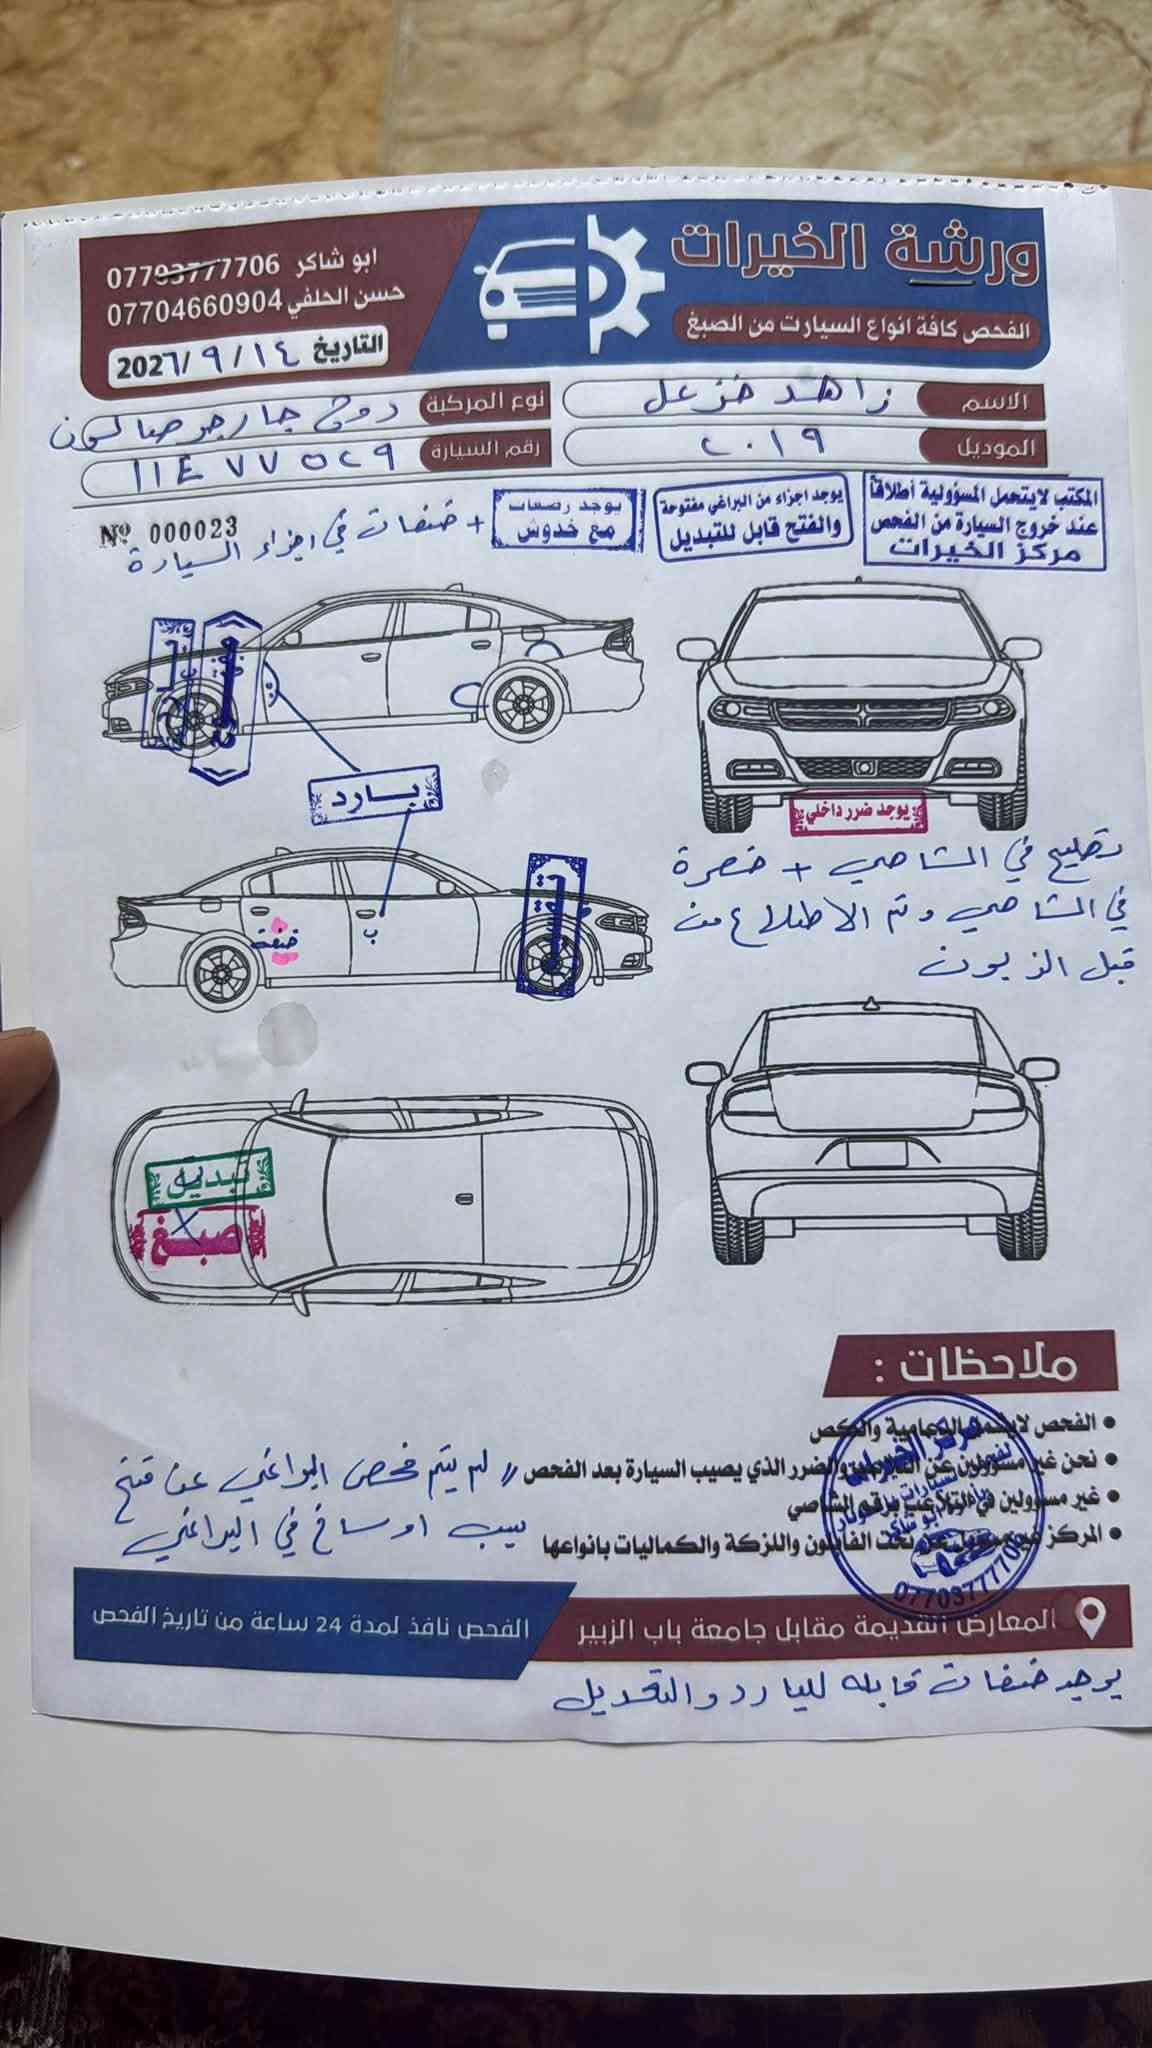 ورشة الخيرات
الفحص كافة انواع السيارت من الصبغ
ابو شاكر 07793777706
حسن الحلفي 07704660904
التاريخ ١٤ / ٩ / 202٦
الاسم زاهد خزعل
نوع المركبة دوج جارجر صالون
الموديل ٢٠١٩
رقم السيارة 11E ٧٧٥٢٩
المكتب لايتحمل المسؤولية أطلاقاً
عند خروج السيارة من الفحص
مركز الخيرات
يوجد اجزاء من البراغي مفتوحة
والفتح قابل للتبديل
يوجد رصعات
مع خدوش
+ ضنفات في اجزاء السيارة
Nº 000023
مفتوح
بارد
يوجد ضرر داخلي
تصليح في الشاصي + خصرة
في الشاصي وتم الاطلاع من
قبل الزبون
ضنفة
ب
تبديل
صبغ
ملاحظات :
• الفحص لايشمل الدعامية والكص
• نحن غير مسؤولين عن والضرر الذي يصيب السيارة بعد الفحص // لم يتم فحص البراغي عن فتح
• غير مسؤولين في التلاعب برقم الشاصي
بسبب اوساخ في البراغي
• المركز غير مسؤول عن تحت الفايلون واللزكة والكماليات بانواعها
07703777706
المعارض القديمة مقابل جامعة باب الزبير
الفحص نافذ لمدة 24 ساعة من تاريخ الفحص
يوجد ضنفات قابله للبارد والتعديل